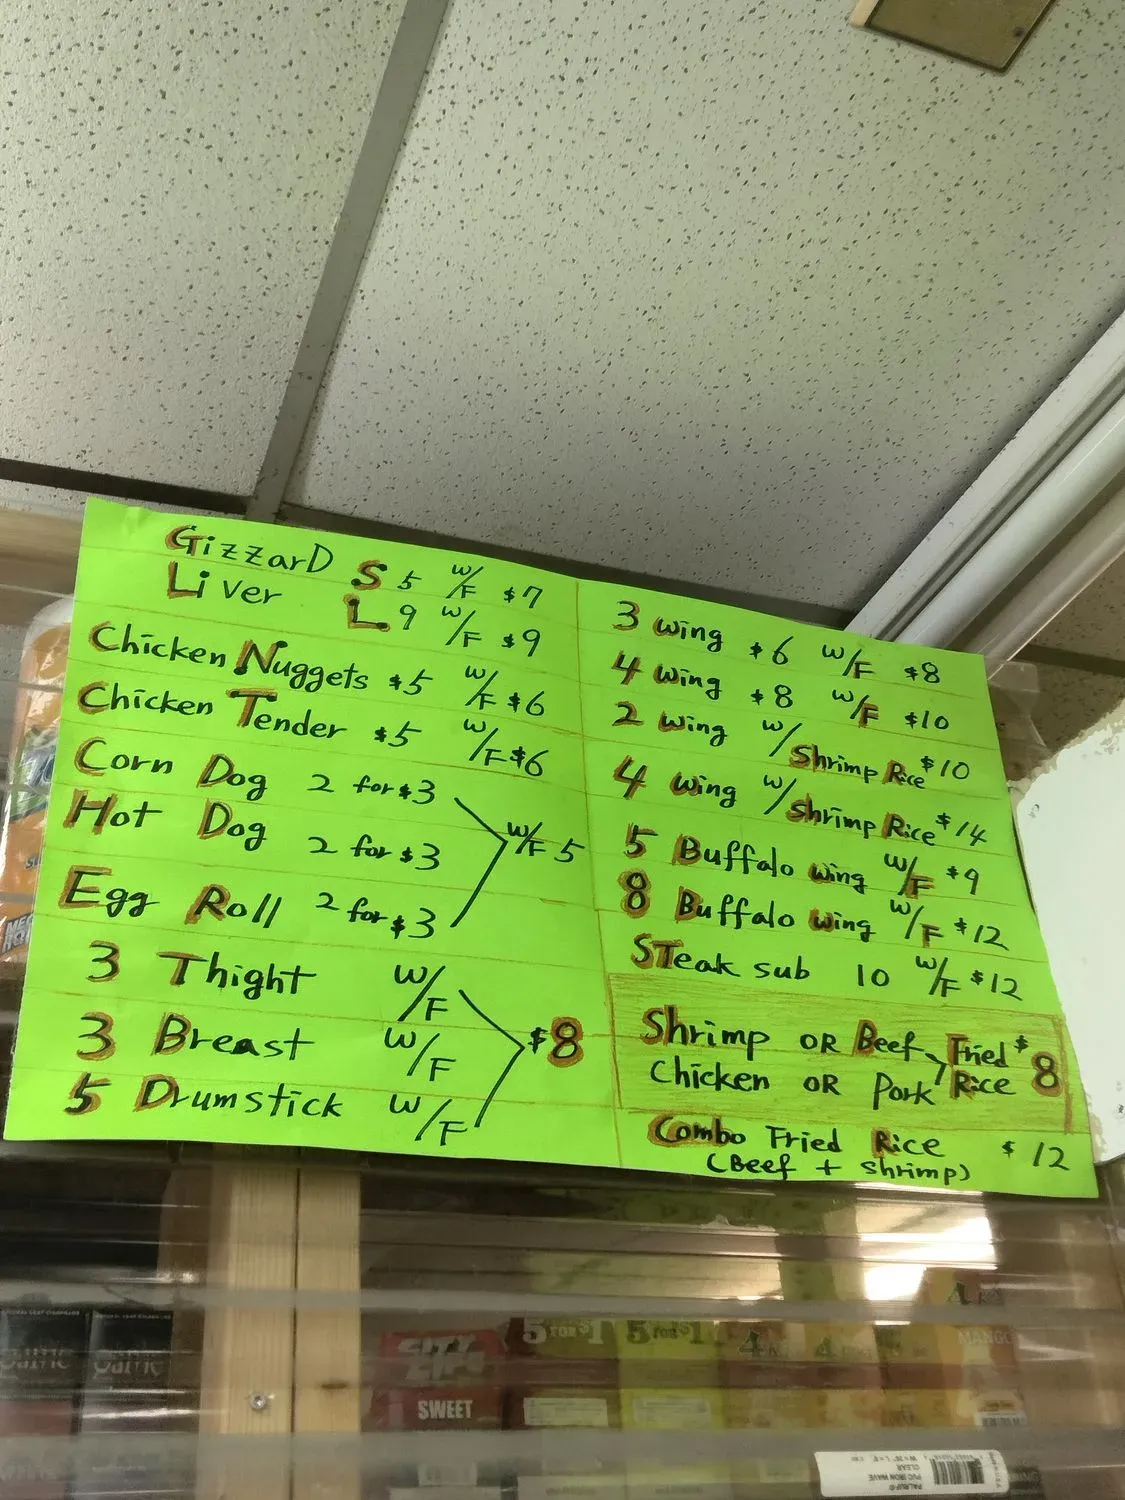 GizzarD S 5 W/F $7
Liver L 9 W/F $9
Chicken Nuggets $5 W/F $6
Chicken Tender $5 W/F $6
Corn Dog 2 for $3
Hot Dog 2 for $3
W/F 5
Egg Roll 2 for $3
3 Thight W/F
3 Breast W/F
$8
5 Drumstick W/F
3 wing $6 W/F $8
4 wing $8 W/F $10
2 wing W/Shrimp Rice $10
4 wing W/Shrimp Rice $14
5 Buffalo wing W/F $9
8 Buffalo wing W/F $12
STeak sub 10 W/F $12
Shrimp OR Beef Fried $8
Chicken OR Pork Rice
Combo Fried Rice $12
(Beef + shrimp)
5 FOR $1
5 FOR $1
SWEET
MANGO
PALRUF®
PVC IRON WAVE
CLEAR